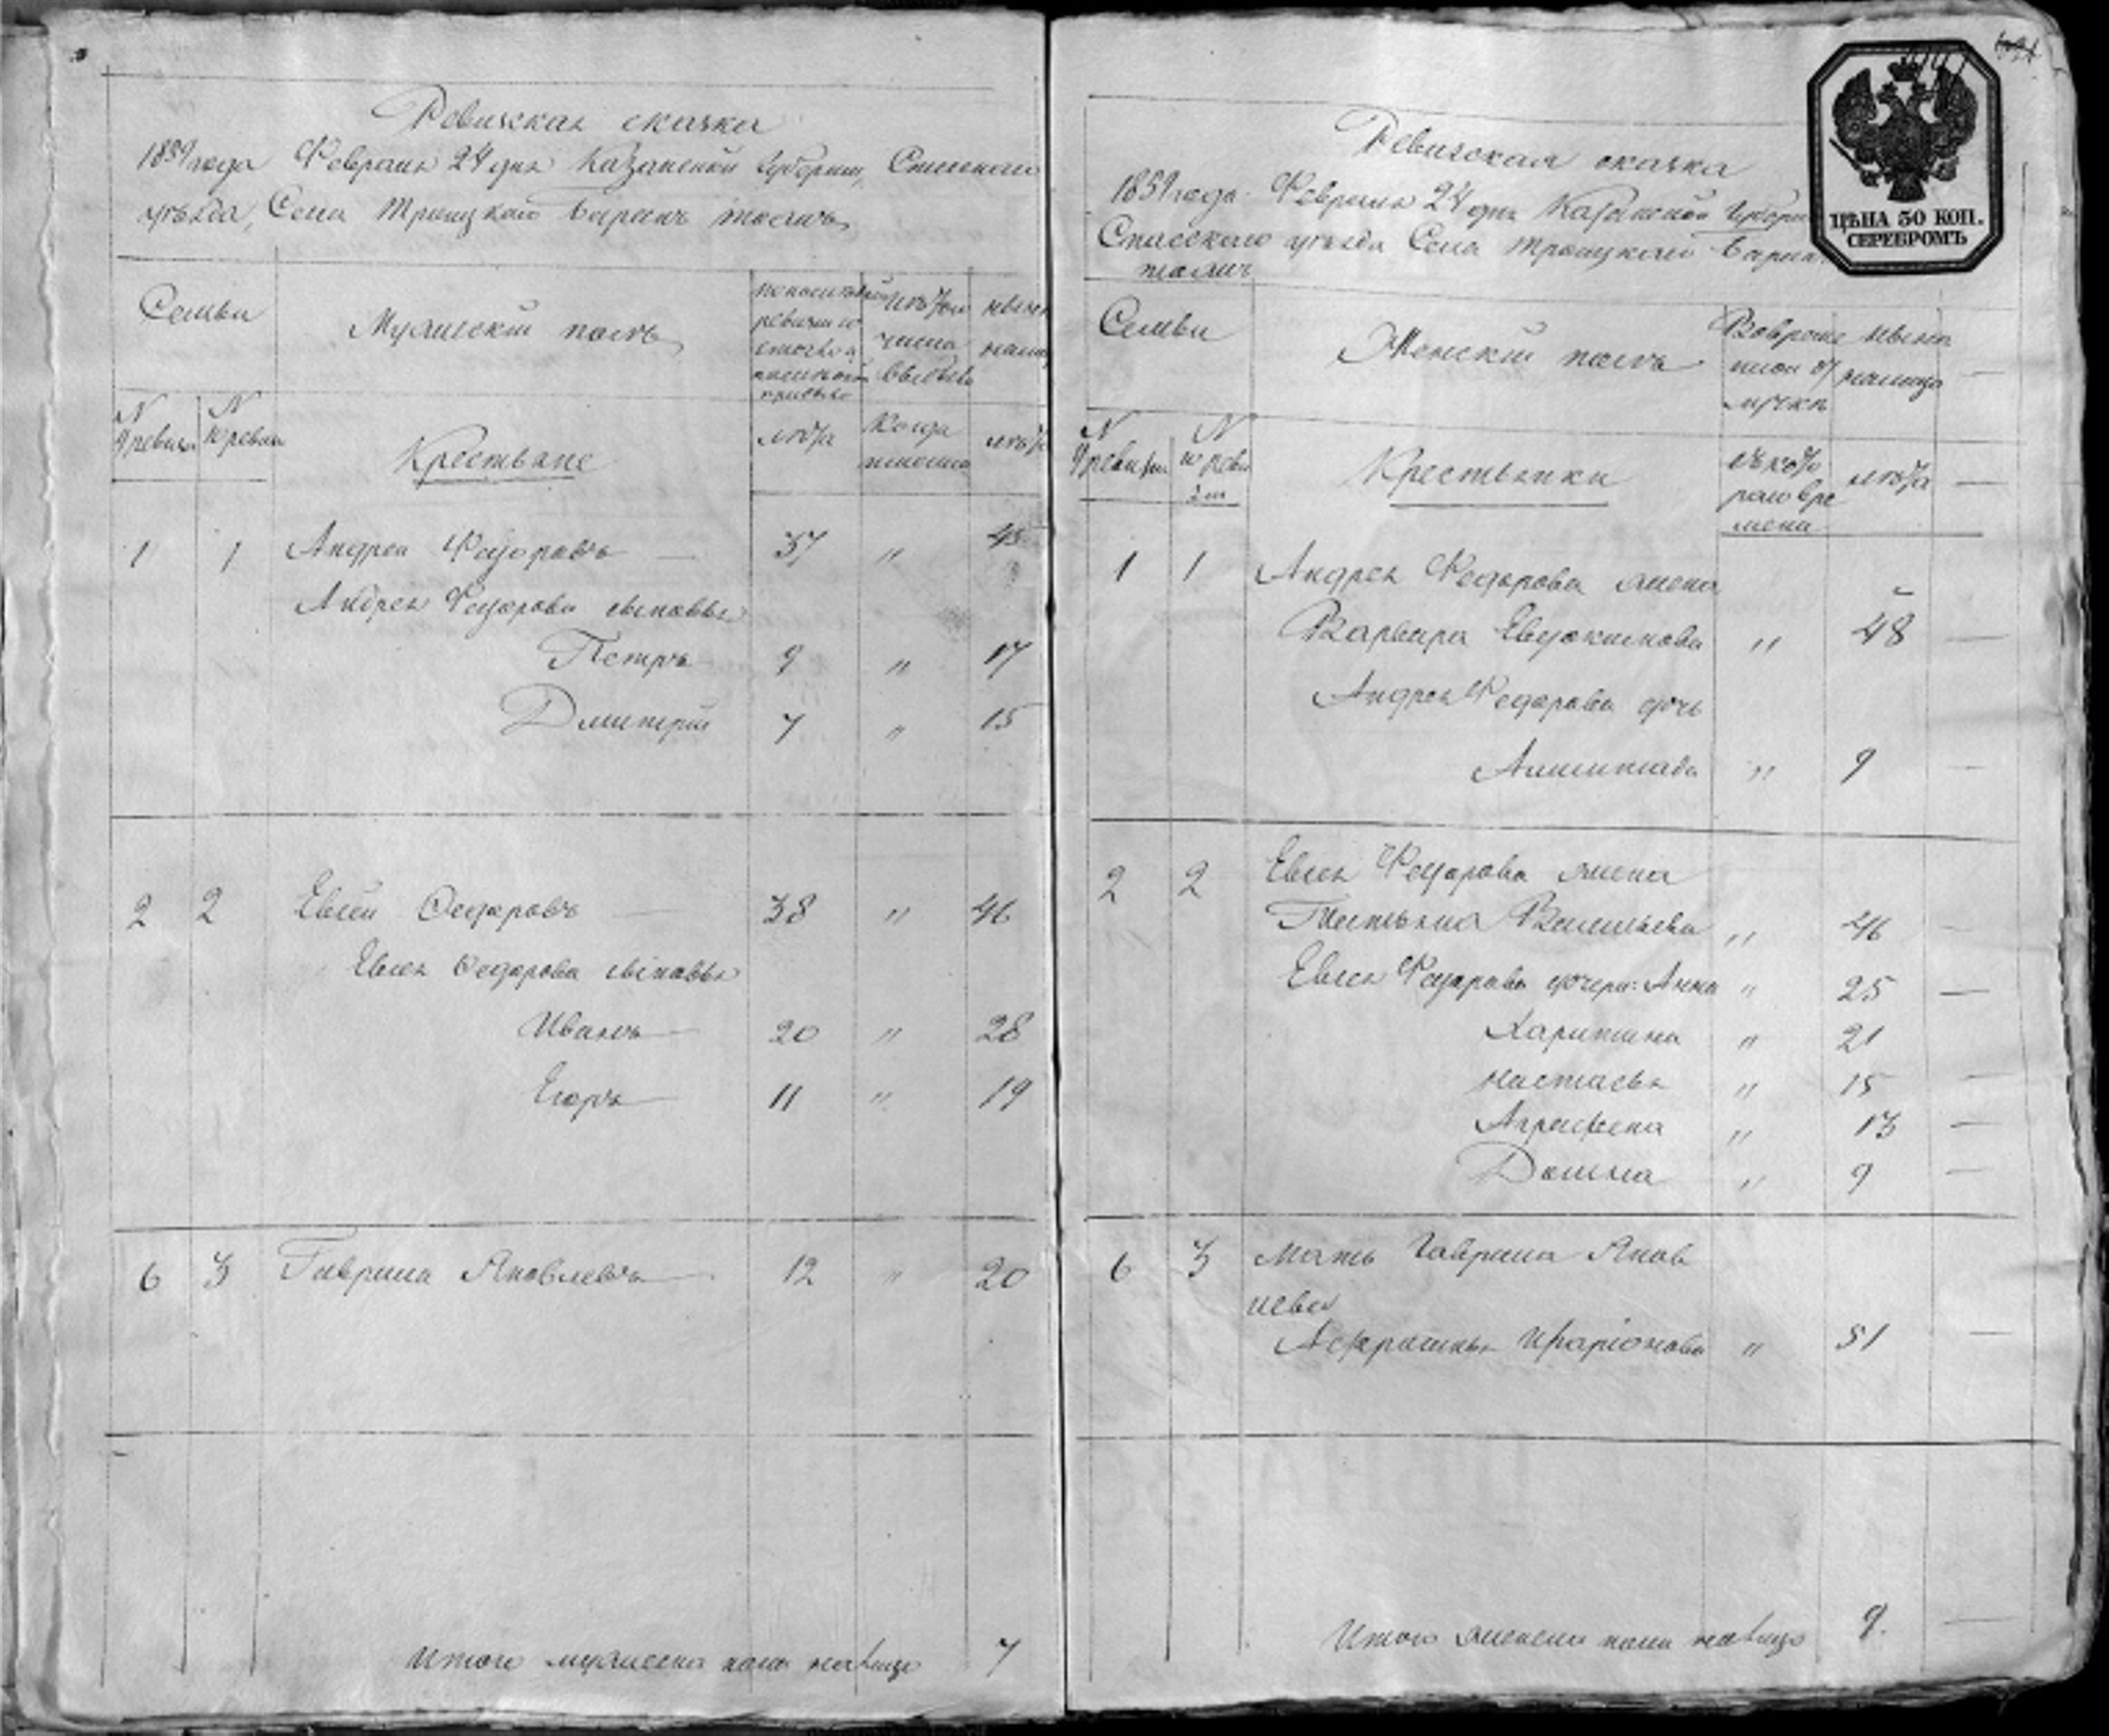 Ревизская сказка
1859 года Февраля 24 дня Казанской Губернии, Спаскаго
уезда, Села Троицкаго Баранъ тожъ
Семьи
Мужеский полъ
по последней
ревизии со
стояло и
после того
прибыло
изъ того
числа
выбыло
ныне
налицо
N
9 ревизи
N
10 ревизи
Крестьяне
лета
Когда
имянно
лета
1 1 Андрей Федоровъ — 37 " 45
Андрея Федорова сыновья
Петръ 9 " 17
Дмитрий 7 " 15
2 2 Евсей Федоровъ — 38 " 46
Евсея Федорова сыновья
Иванъ — 20 " 28
Егоръ — 11 " 19
6 3 Гаврила Яковлевъ — 12 " 20
Итого мужеска пола налицо 7
Ревизская сказка
1859 года Февраля 24 дня Казанской Губерн
Спасскаго уезда Села Троицкаго Баран
тожъ
ЦѢНА 50 КОП.
СЕРЕБРОМЪ
Семьи
Женский полъ
Вовремен
ной от
лучке
ныне
налицо
N
9 ревизии
N
10 реви
зии
Крестьянки
съ кото
раго вре
мени
лета
1 1 Андрея Федорова жена
Варвара Евдокимова " 48
Андрея Федорова дочь
" 9
2 2 Евсея Федорова жена
Татьяна Васильева " 46
Евсея Федорова дочери: Анна " 25
Харитина " 21
Настасья " 15
Аграфена " 13
Домна " 9
6 3 Мать Гаврила Яков
лева
" 51
Итого женска пола налицо 9.